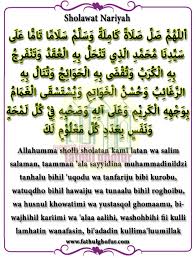 Sholawat Nariyah
اَللّٰهُمَّ صَلِّ صَلَاةً كَامِلَةً وَسَلِّمْ سَلَامًا تَامًّا عَلَى
سَيِّدِنَا مُحَمَّدِ الَّذِي تَنْحَلُّ بِهِ الْعُقَدُ وَتَنْفَرِجُ
بِهِ الْكُرَبُ وَتُقْضَى بِهِ الْحَوَائِجُ وَتُنَالُ بِهِ
الرَّغَائِبُ وَحُسْنُ الْخَوَاتِمِ وَيُسْتَسْقَى الْغَمَامُ
بِوَجْهِهِ الْكَرِيْمِ وَعَلَى آلِهِ وَصَحْبِهِ فِي كُلِّ لَمْحَةٍ
وَنَفَسٍ بِعَدَدِ كُلِّ مَعْلُوْمٍ لَكَ
Allahumma sholli sholatan kami latan wa salim
salaman, taamman 'ala sayyidina muhammadinildzi
tanhalu bihil 'uqodu wa tanfariju bibi kurobu,
watuqdho bihil hawaiju wa tunaalu bihil roghoibu,
wa husnul khowatimi wa yustasqol ghomaamu, bi-
wajhihil kariimi wa 'alaa aalihi, washohbihi fii kulli
lamhatin wanafasin, bi'adadin kullima'luumillak
www.fathulghofur.com